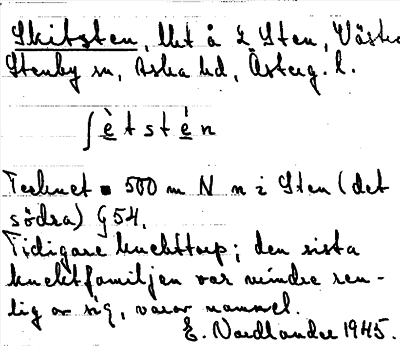 Skitsten, lht å L Sten, Västra
Stenby sn, Aska hd, Österg. l.
ʃètstén
Tecknet ▪ 500 m N n i Sten (det
södra) G 54.
Tidigare knekttorp; den sista
knektfamiljen var mindre ren-
lig av sig, varav namnet.
E. Nordlander 1945.